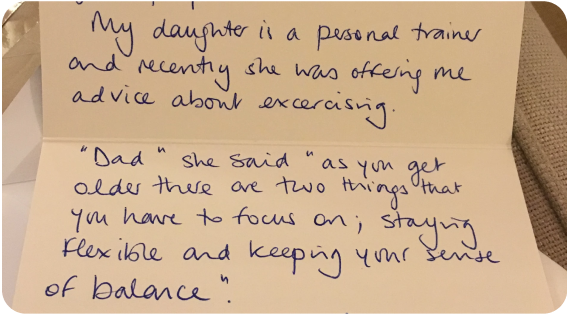 My daughter is a personal trainer
and recently she was offering me
advice about excercising.
"Dad" she said "as you get
older there are two things that
you have to focus on; staying
flexible and keeping your sense
of balance".